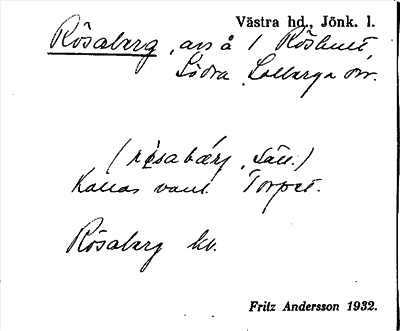 Västra hd., Jönk. l.
Rösaberg, avs å 1 Röshult,
Södra Solberga sn.
(rösabærj, sätt.)
Kallas vanl. Torpet.
Rösaberg kv.
Fritz Andersson 1932.